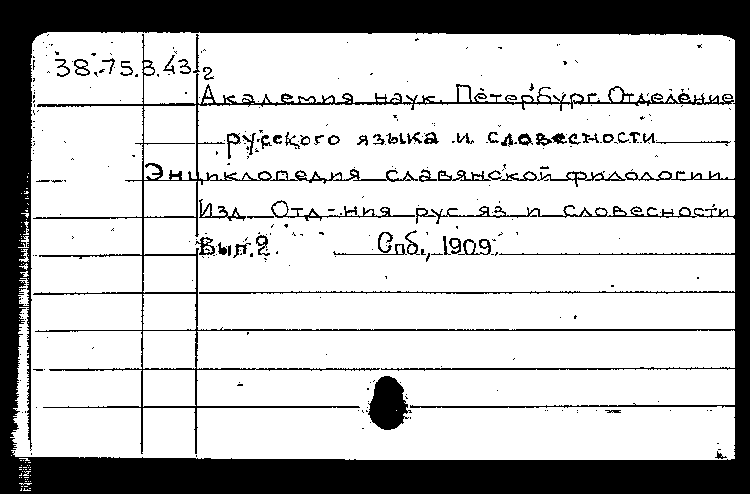 38.75.3.43-2
Академия наук. Петербург. Отделение
русского языка и словесности
Энциклопедия славянской филологии.
Изд. Отд-ния рус яз и словесности
Вып.2 Спб., 1909.